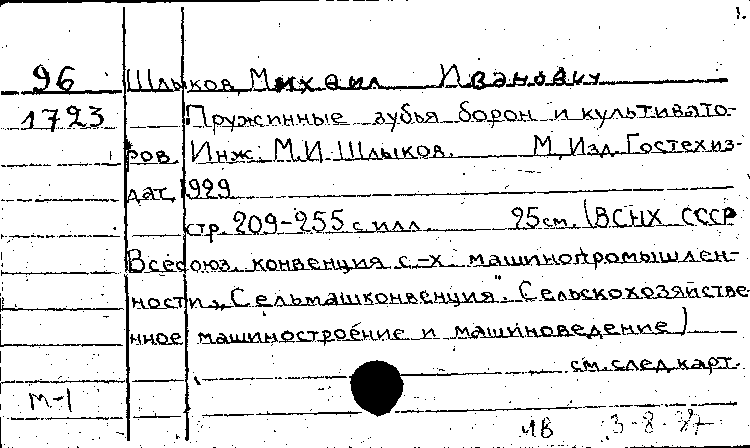 1.
96 Шлыков, Михаил Иванович
1723 Пружинные зубья борон и культивато-
ров. Инж. М.И. Шлыков. М, Изд. Гостехиз-
дат, 1929
стр. 209-255 с илл. 25см. (ВСНХ СССР
Всесоюз. конвенция с.-х. машинопромышлен-
ности „Сельмашконвенция". Сельскохозяйстве-
нное машиностроение и машиноведение)
см. след. карт.
М-1
МВ 3-8-37